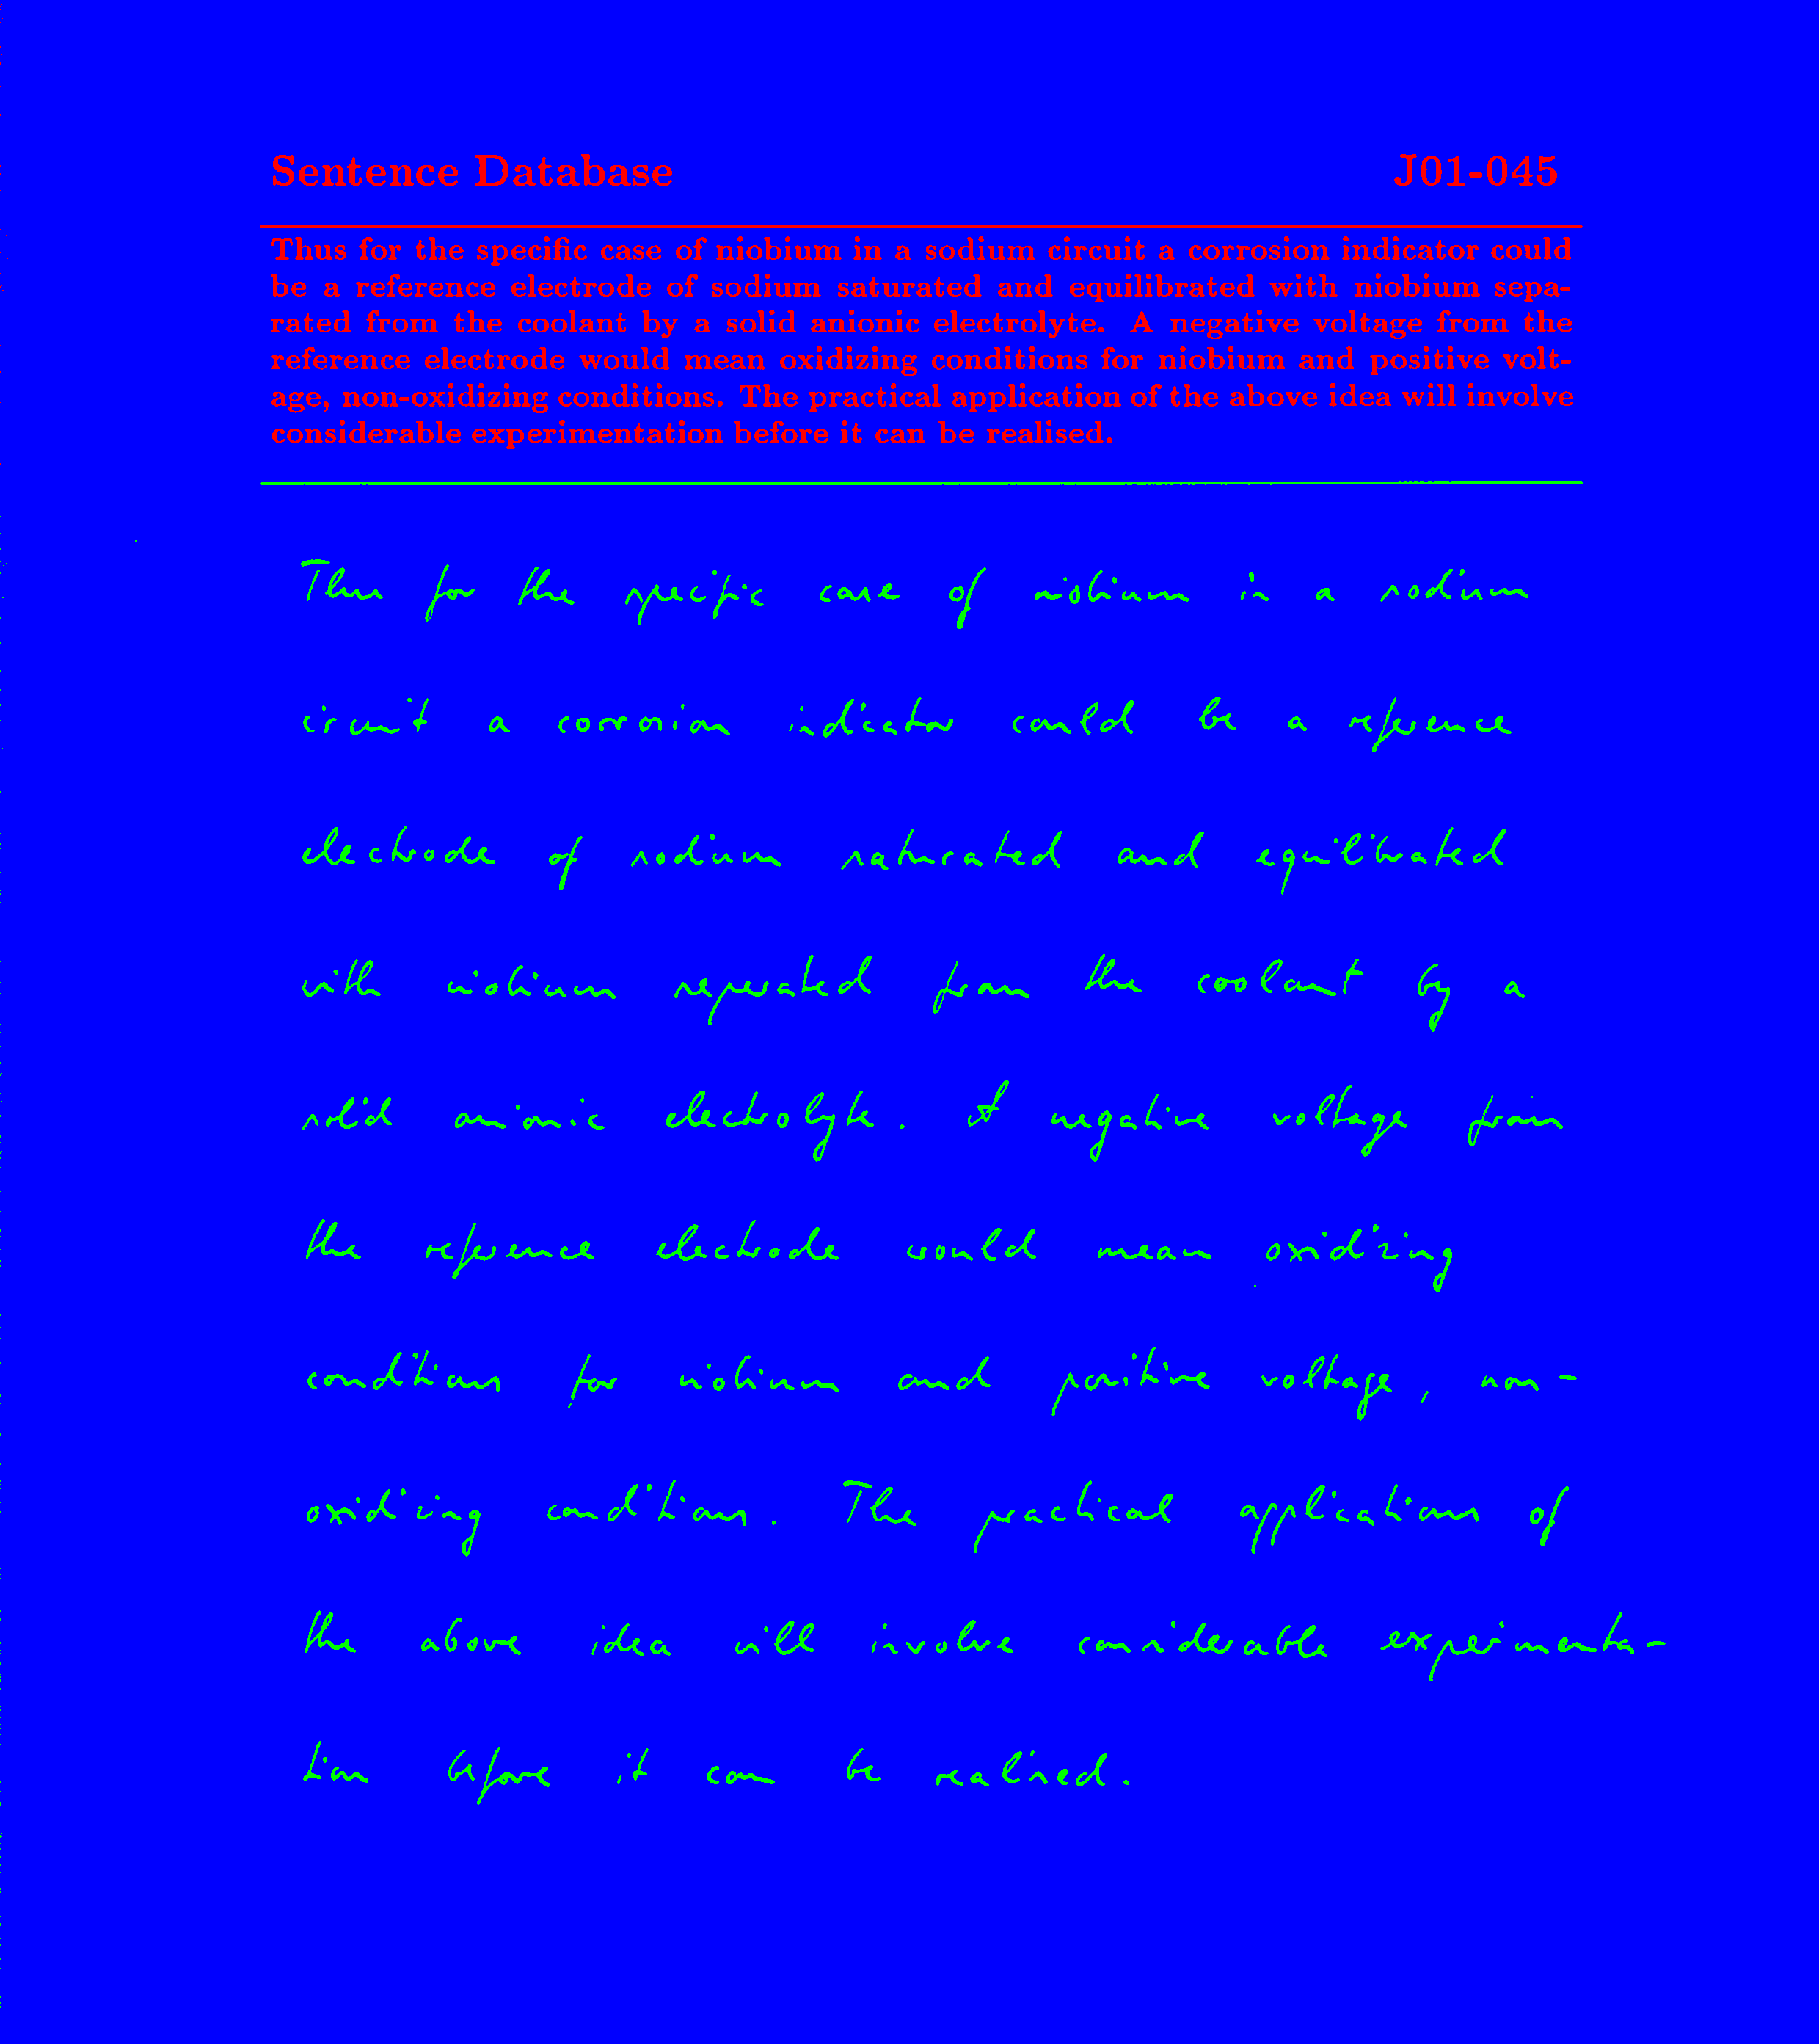 Sentence Database J01-045
Thus for the specific case of niobium in a sodium circuit a corrosion indicator could
be a reference electrode of sodium saturated and equilibrated with niobium sepa-
rated from the coolant by a solid anionic electrolyte. A negative voltage from the
reference electrode would mean oxidizing conditions for niobium and positive volt-
age, non-oxidizing conditions. The practical application of the above idea will involve
considerable experimentation before it can be realised.
Thus for the specific case of niobium in a sodium
circuit a corrosion indicator could be a reference
electrode of sodium saturated and equilibrated
with niobium seperated from the coolant by a
solid anionic electrolyte. A negative voltage from
the reference electrode would mean oxidizing
conditions for niobium and positive voltage, non-
oxidizing conditions. The practical applications of
the above idea will involve considerable experimenta-
tion before it can be realised.